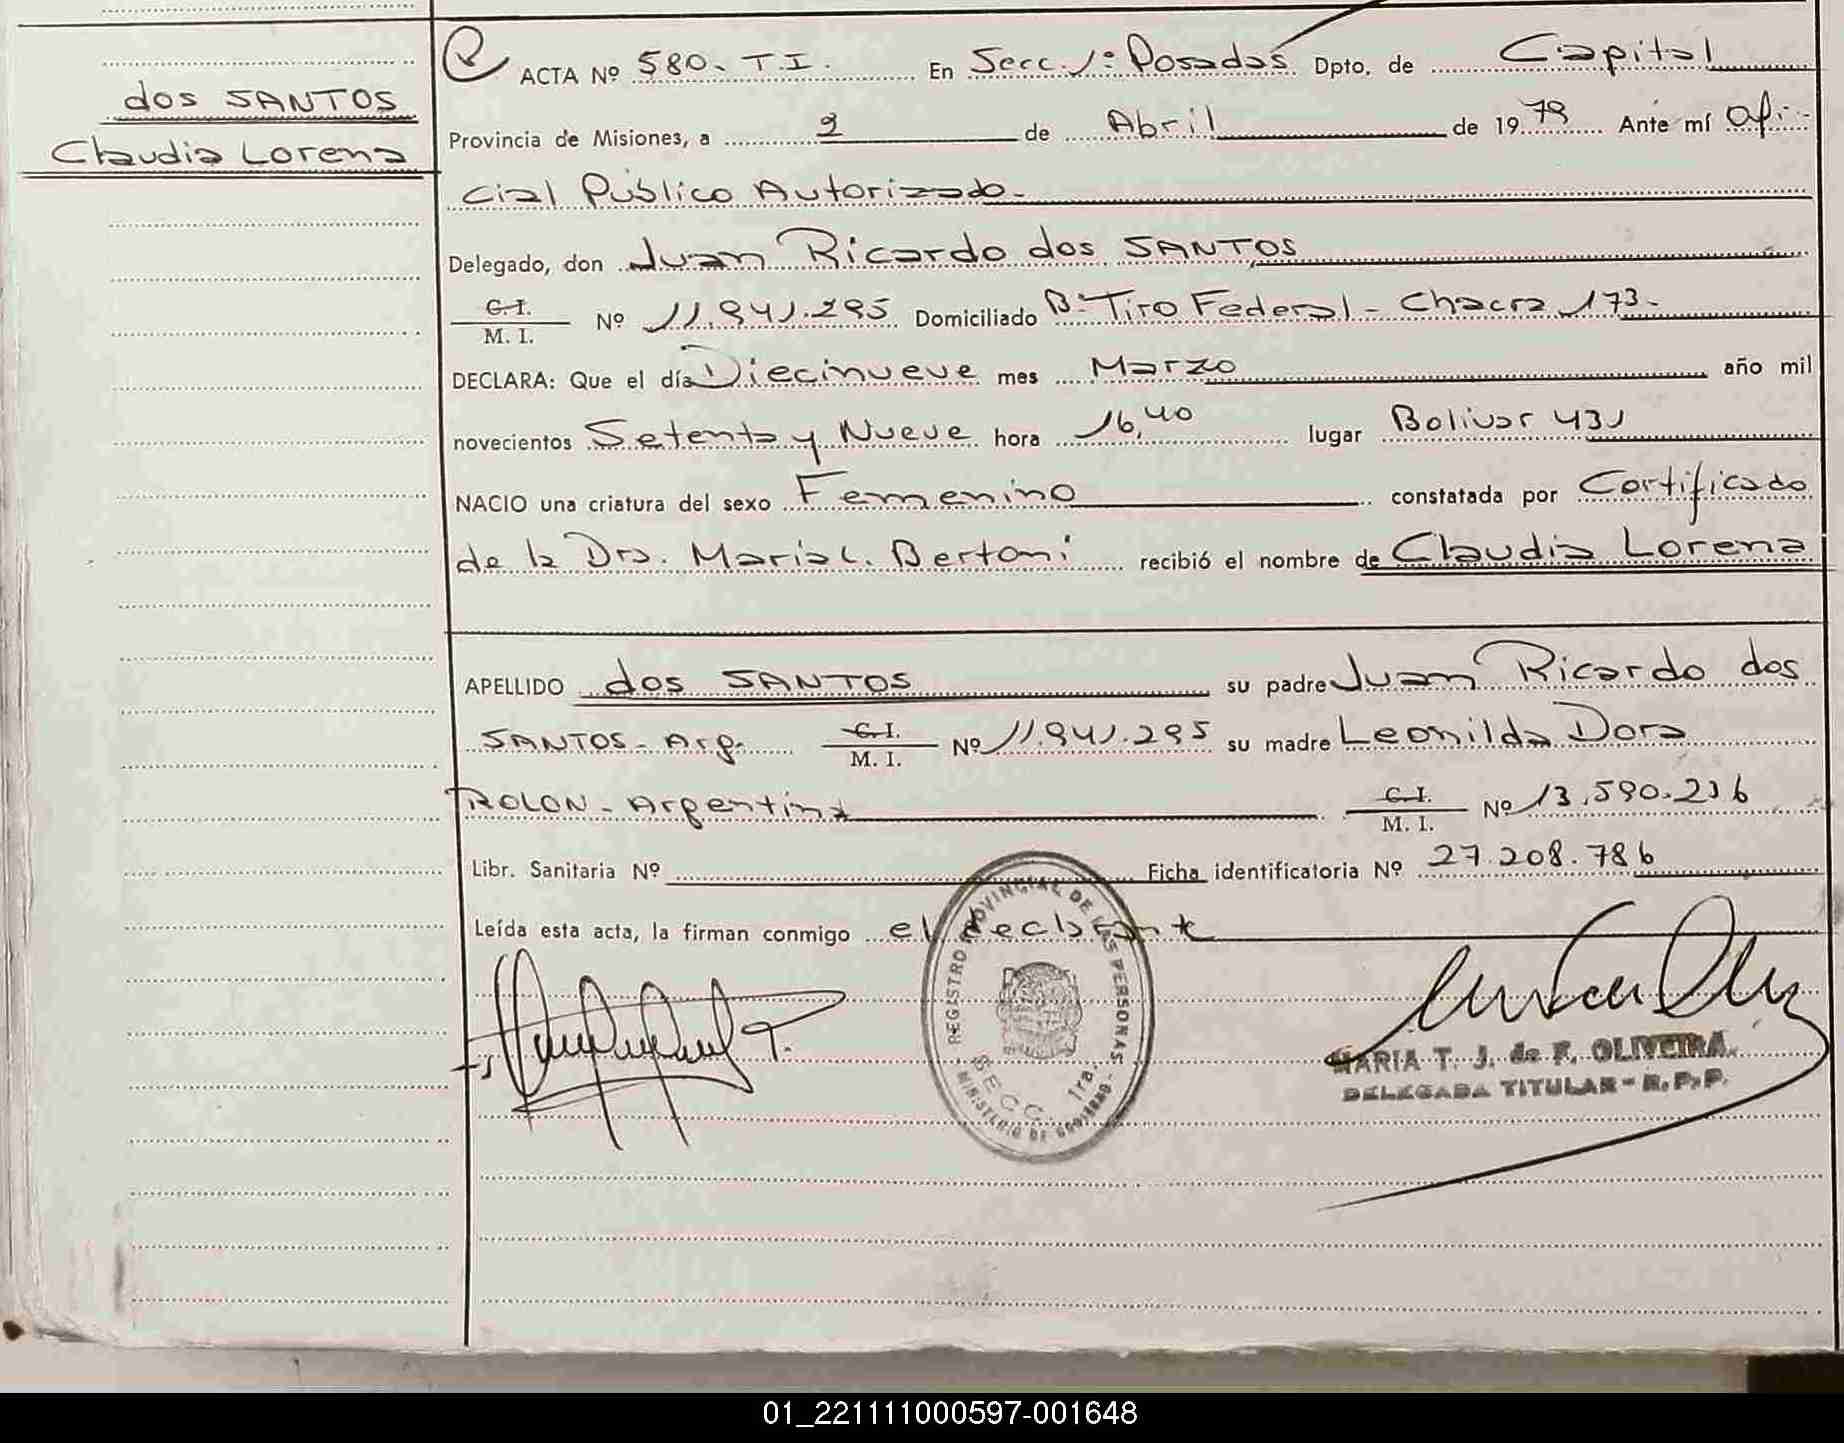 dos SANTOS
Claudia Lorena
ACTA Nº 580. T.I. En Secc. 1ª Posadas Dpto. de Capital
Provincia de Misiones, a 2 de Abril de 1979 Ante mí Ofi-
cial Público Autorizado-
Delegado, don Juan Ricardo dos SANTOS
C.I. / M. I. Nº 11.941.295 Domiciliado Bº Tiro Federal - Chacra 173-
DECLARA: Que el día Diecinueve mes Marzo año mil
novecientos Setenta y Nueve hora 16,40 lugar Bolivar 431
NACIO una criatura del sexo Femenino constatada por Certificado
de la Dra. Maria L. Bertoni recibió el nombre de Claudia Lorena
APELLIDO dos SANTOS su padre Juan Ricardo dos
SANTOS - Arg. C.I. / M. I. Nº 11.941.295 su madre Leonilda Dora
ROLON - Argentina C.I. / M. I. Nº 13.590.236
Libr. Sanitaria Nº Ficha identificatoria Nº 27.208.786
Leída esta acta, la firman conmigo el declarante
REGISTRO PROVINCIAL DE LAS PERSONAS
SECC. 1ra.
MINISTERIO DE GOBIERNO
MARIA T. J. de F. OLIVEIRA
DELEGADA TITULAR - R. P. P.
01_221111000597-001648